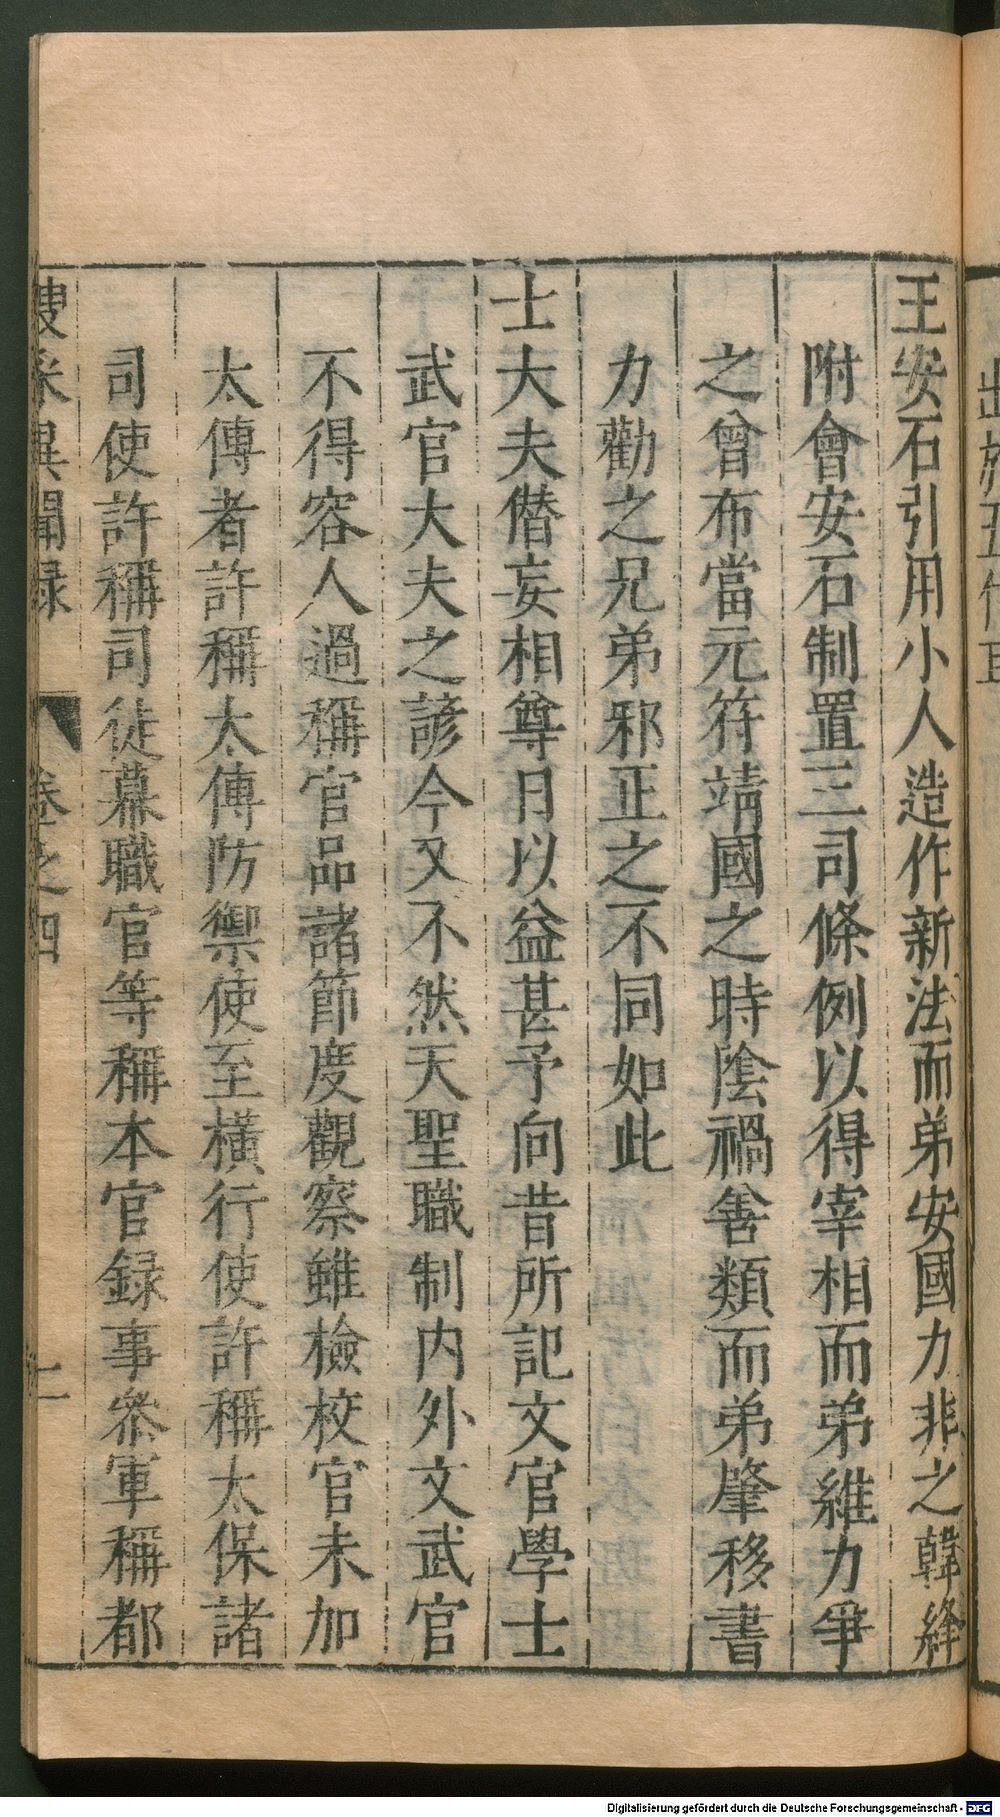 王安石引用小人造作新法而弟安國力非之韓絳
附會安石制置三司條例以得宰相而弟維力爭
之曾布當元符靖國之時陰禍善類而弟肇移書
力勸之兄弟邪正之不同如此
士大夫僭妄相尊日以益甚予向昔所記文官學士
武官大夫之諺今又不然天聖職制内外文武官
不得容人過稱官品諸節度觀察雖檢校官未加
太傅者許稱太傅防禦使至橫行使許稱太保諸
司使許稱司徒幕職官等稱本官録事參軍稱都
搜采異聞録 卷之四 二
Digitalisierung gefördert durch die Deutsche Forschungsgemeinschaft - DFG